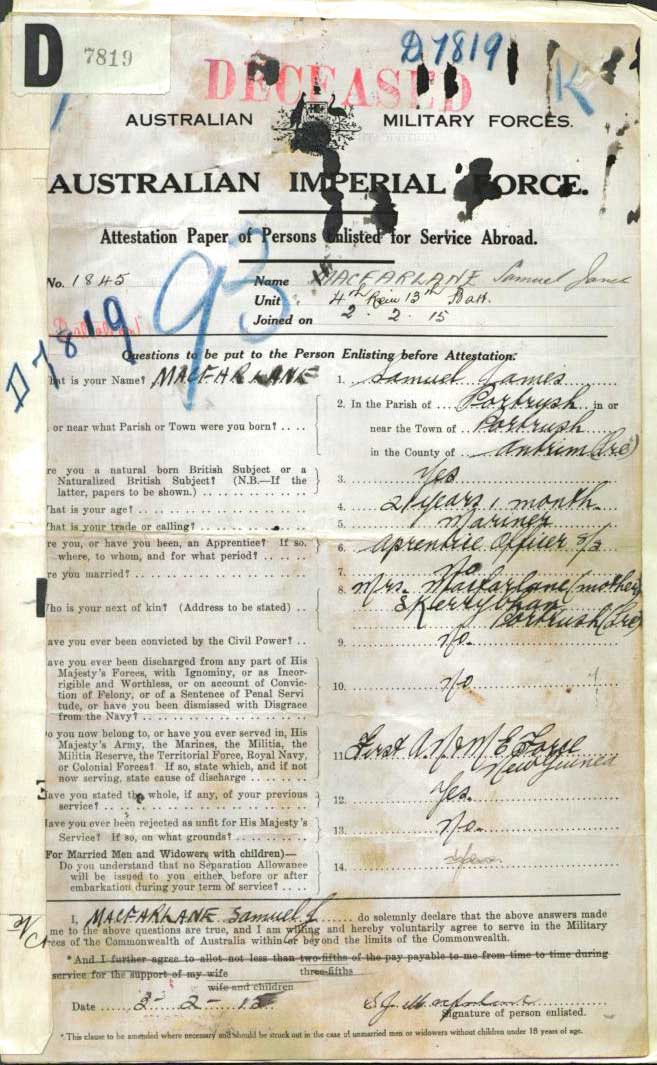 D 7819
D7819
K
DECEASED
AUSTRALIAN MILITARY FORCES.
AUSTRALIAN IMPERIAL FORCE.
Attestation Paper of Persons Enlisted for Service Abroad.
No. 1845 Name MACFARLANE Samuel James
Unit 4th Rein 13th Batt.
Joined on 2.2.15
93
D7819
Questions to be put to the Person Enlisting before Attestation.
hat is your Name? MACFARLANE 1. Samuel James
or near what Parish or Town were you born? .... 2. In the Parish of Portrush in or
near the Town of Portrush
in the County of Antrim (Ire)
re you a natural born British Subject or a
Naturalized British Subject? (N.B.—If the
latter, papers to be shown.) 3. Yes
hat is your age? 4. 21 years 1 month.
hat is your trade or calling? 5. Mariner
re you, or have you been, an Apprentice? If so,
where, to whom, and for what period? 6. Aprentice Officer
re you married? 7. No
ho is your next of kin? (Address to be stated) .. 8. Mrs. Macfarlane (mother)
Portrush (Ire)
ave you ever been convicted by the Civil Power? .. 9. No.
ave you ever been discharged from any part of His
Majesty's Forces, with Ignominy, or as Incor-
rigible and Worthless, or on account of Convic-
tion of Felony, or of a Sentence of Penal Servi
tude, or have you been dismissed with Disgrace
from the Navy? 10. No
o you now belong to, or have you ever served in, His
Majesty's Army, the Marines, the Militia, the
Militia Reserve, the Territorial Force, Royal Navy,
or Colonial Forces? If so, state which, and if not
now serving, state cause of discharge 11. First N & M E Force
New Guinea
ave you stated the whole, if any, of your previous
service? 12. Yes.
ave you ever been rejected as unfit for His Majesty's
Service? If so, on what grounds? 13. No.
(For Married Men and Widowers with children)—
Do you understand that no Separation Allowance
will be issued to you either before or after
embarkation during your term of service? .... 14.
I, MACFARLANE Samuel J do solemnly declare that the above answers made
me to the above questions are true, and I am willing and hereby voluntarily agree to serve in the Military
rces of the Commonwealth of Australia within or beyond the limits of the Commonwealth.
*And I further agree to allot not less than two-fifths of the pay payable to me from time to time during
three-fifths
service for the support of my wife
wife and children
Date 2-2-15 S J Macfarlane
Signature of person enlisted.
*This clause to be amended where necessary and should be struck out in the case of unmarried men or widowers without children under 18 years of age.